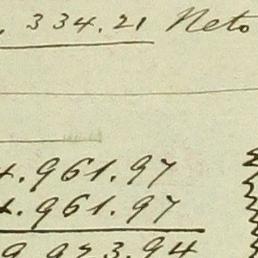 334.21 Neto
4.961.97
4.961.97
9.923.94